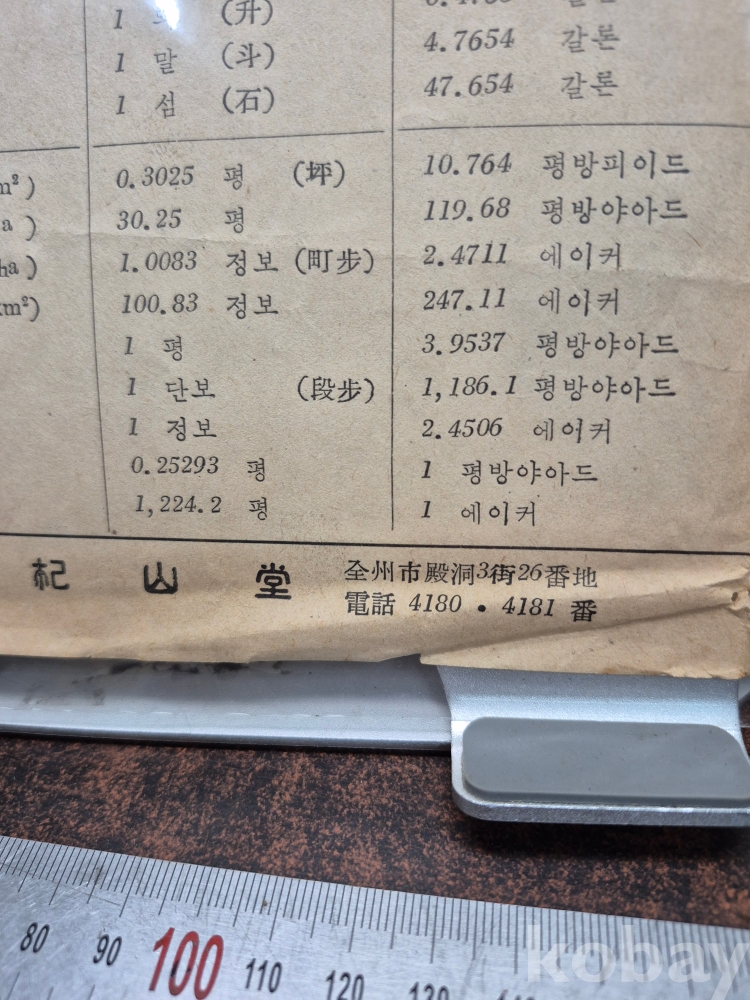 1 되 (升)
4.7654 갈론
1 말 (斗)
47.654 갈론
1 섬 (石)
m²) 0.3025 평 (坪) 10.764 평방피이드
a ) 30.25 평 119.68 평방야아드
ha ) 1.0083 정보 (町步) 2.4711 에이커
km²) 100.83 정보 247.11 에이커
1 평 3.9537 평방야아드
1 단보 (段步) 1,186.1 평방야아드
1 정보 2.4506 에이커
0.25293 평 1 평방야아드
1,224.2 평 1 에이커
杞 山 堂 全州市殿洞3街26番地
電話 4180 · 4181 番
80 90 100 110 120 130
kobay